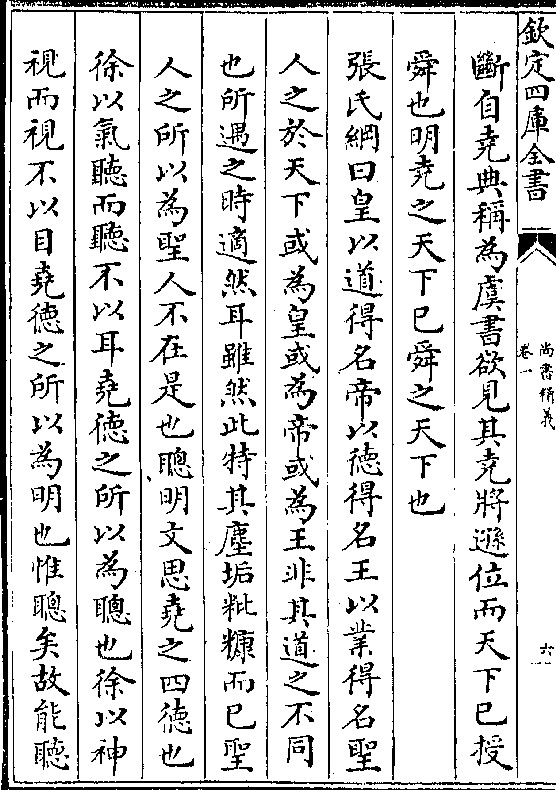 欽定四庫全書
尚書精義
卷一
六
斷自堯典稱為虞書欲見其堯將遜位而天下已授
舜也明堯之天下已舜之天下也
張氏綱曰皇以道得名帝以德得名王以業得名聖
人之於天下或為皇或為帝或為王非其道之不同
也所遇之時適然耳雖然此特其塵垢粃糠而已聖
人之所以為聖人不在是也聰明文思堯之四德也
徐以氣聽而聽不以耳堯德之所以為聰也徐以神
視而視不以目堯德之所以為明也惟聰矣故能聽